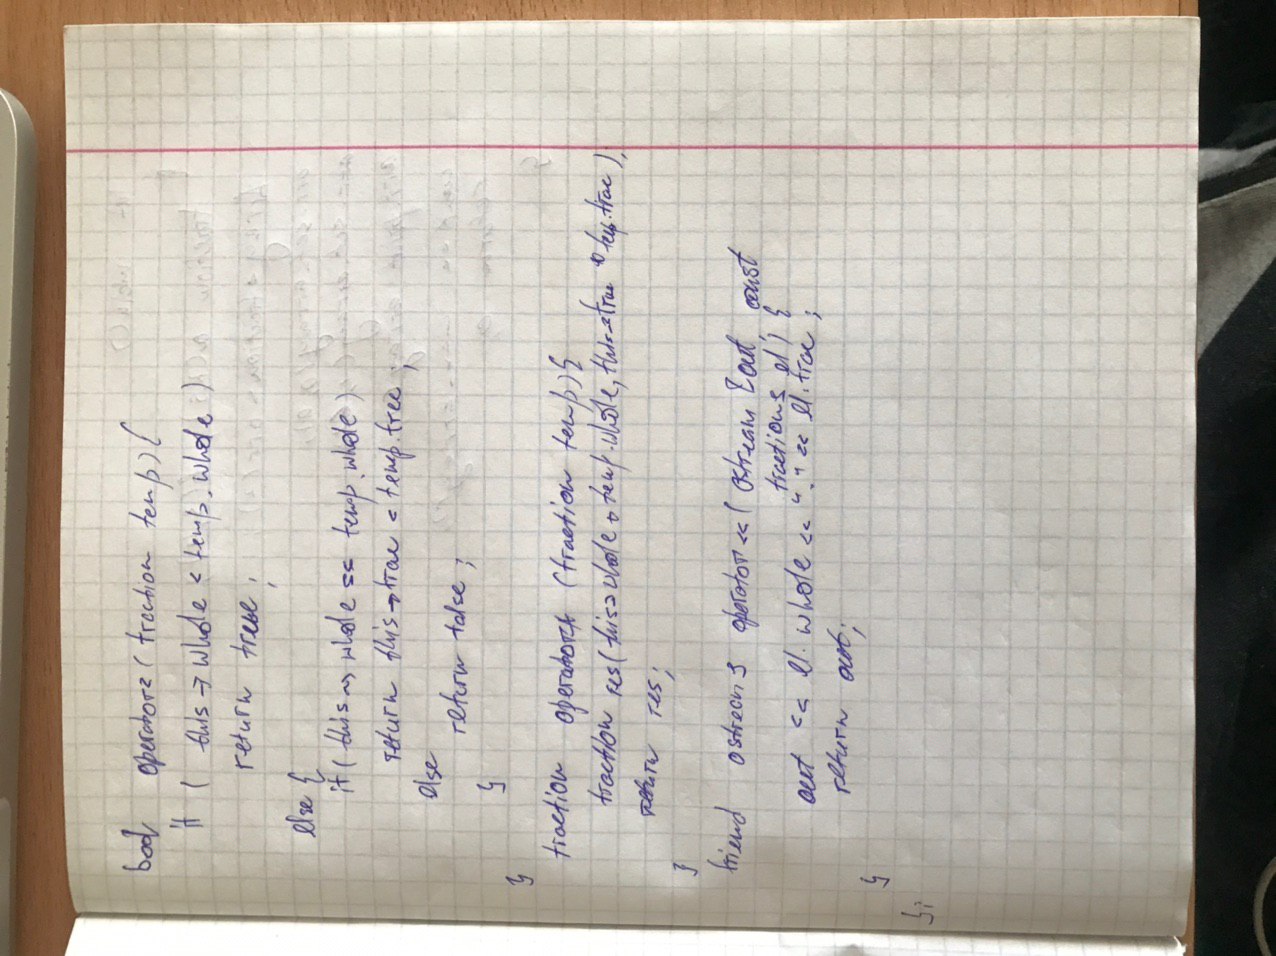 bool operator< (fraction temp){
if ( this -> whole < temp.whole )
return true ;
else {
if ( this -> whole == temp.whole )
return this -> frac < temp.frac ;
else
return false ;
}
}
fraction operator+ (fraction temp){
fraction res(this->whole + temp.whole, this->frac + temp.frac);
return res;
}
friend ostream& operator<< ( ostream &out, const
fraction& el) {
out << el.whole << "." << el.frac ;
return out;
}
};